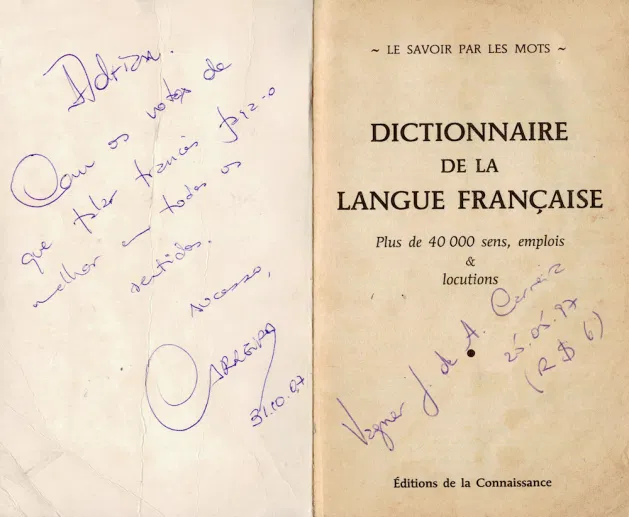 Adrian.
Com os votos de
que falar francês faz-o
melhor em todos os
sentidos.
sucesso,
CARREIRA
31.10.97
~ LE SAVOIR PAR LES MOTS ~
DICTIONNAIRE
DE LA
LANGUE FRANÇAISE
Plus de 40 000 sens, emplois
&
locutions
Vagner J. de A. Carreira
25.05.97
(R$ 6)
Éditions de la Connaissance